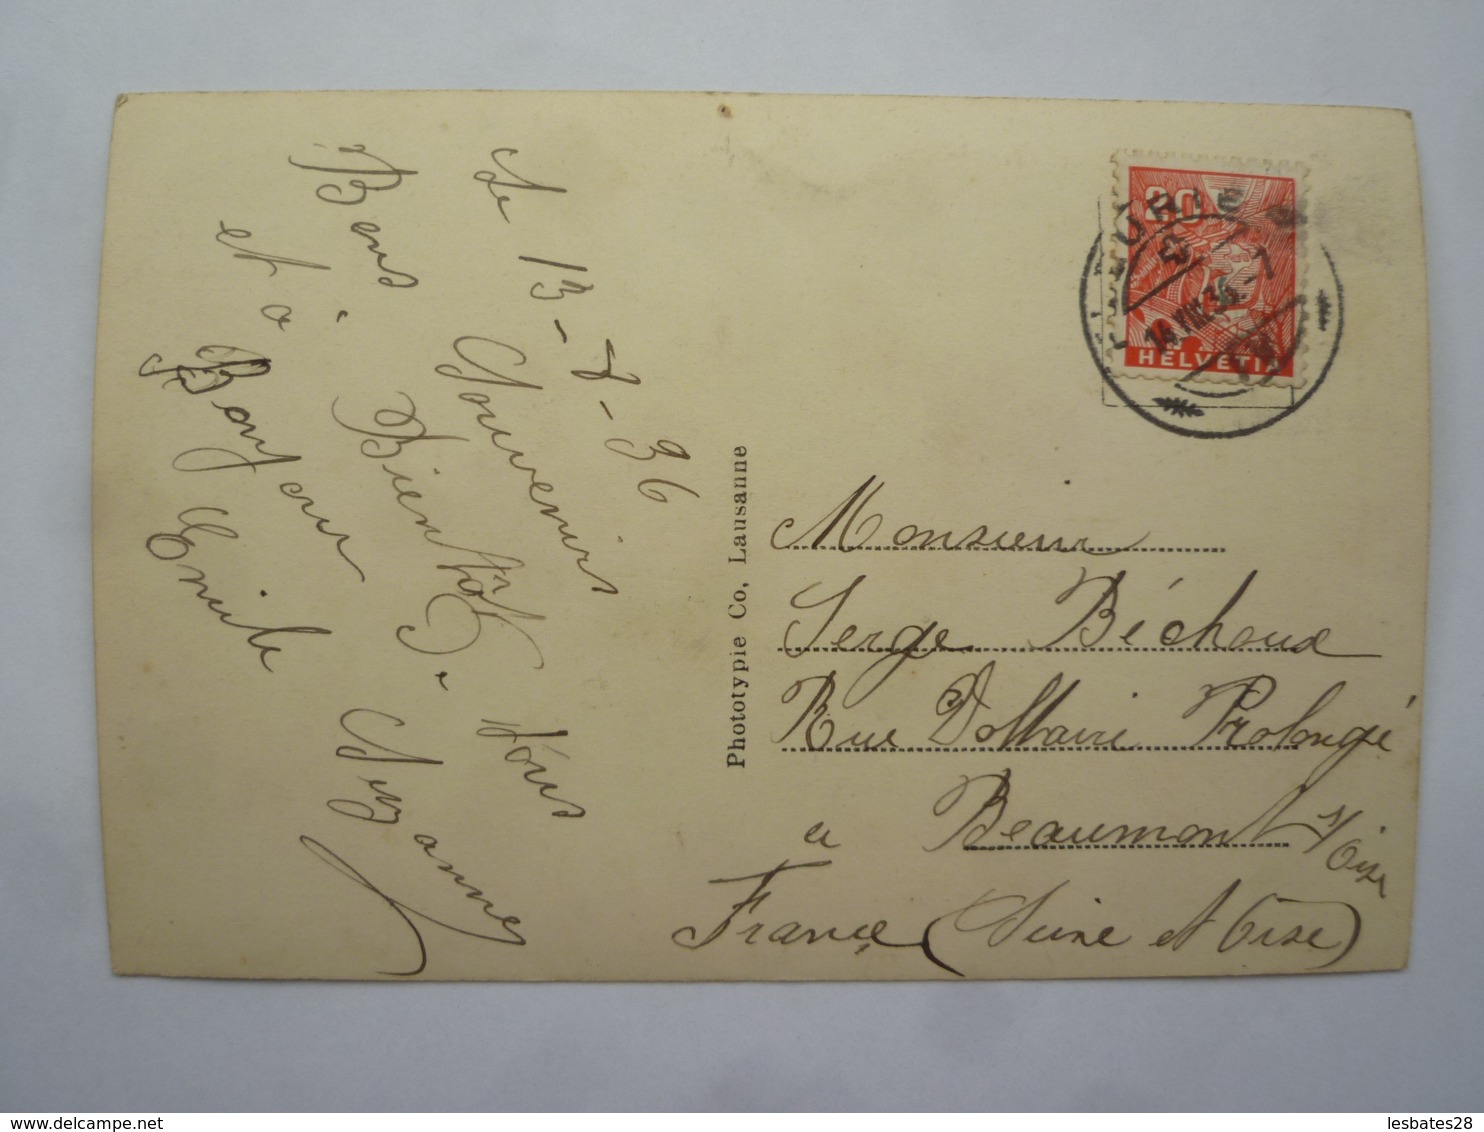 Le 13-8-36
Bons Souvenirs
à Bientôt. Vous
et a Bonjour Suzanne
Emile
Phototypie Co, Lausanne
20
HELVETIA
14.VIII.36.-7
Monsieur
Serge Béchoux
Rue Dolbani Prolongé
a Beaumont s/Oise
France (Seine et Oise)
delcampe.net
lesbates28